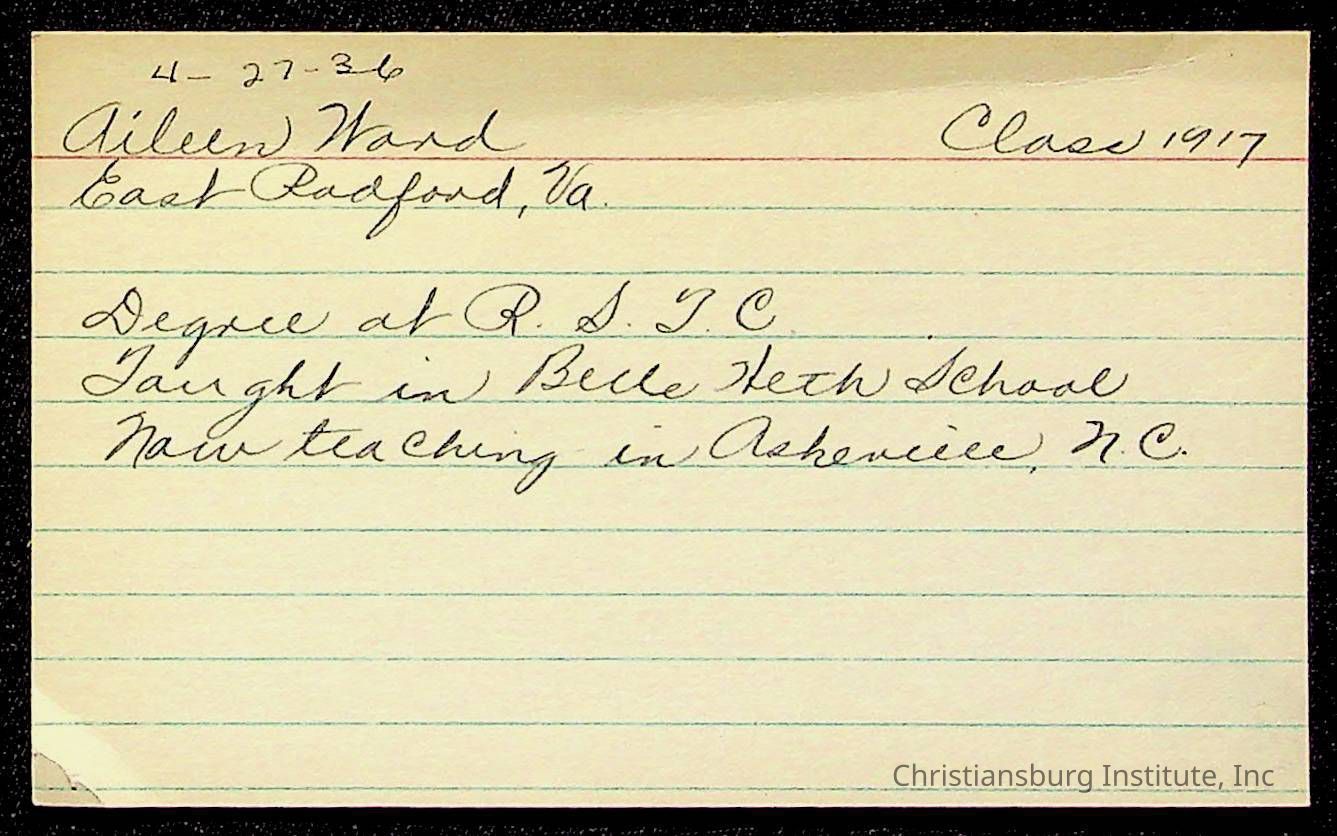 4-27-36
Aileen Ward Class 1917
East Radford, Va.
Degree at R. S. T. C.
Taught in Belle Heth School
Now teaching in Asheville, N.C.
Christiansburg Institute, Inc